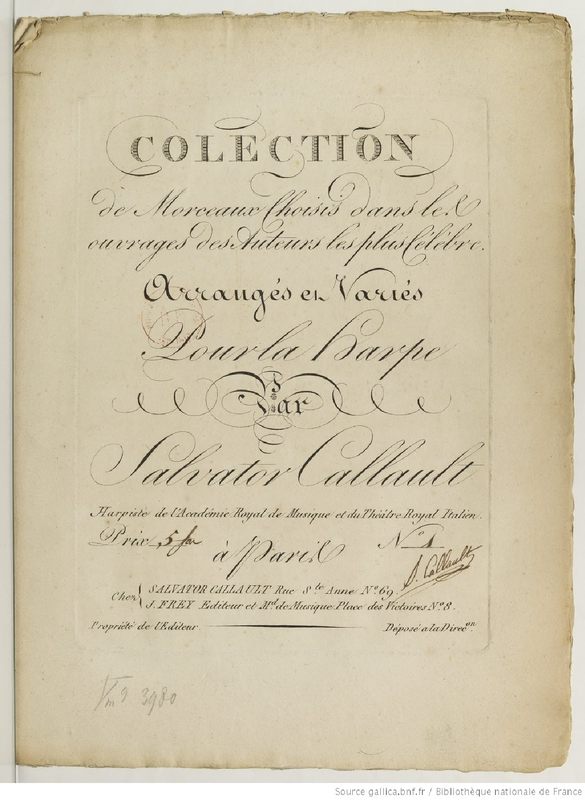 COLECTION
de Morceaux Choisis dans les
ouvrages des Auteurs les plus Célébre.
Arrangés et Variés
Pour la Harpe
Par
Salvator Callault
Harpiste de l'Académie Royal de Musique et du Théâtre Royal Italien.
Prix 5 fr N° 1
à Paris
S. Callault
Chez { SALVATOR CALLAULT Rue S.te Anne N.o 69.
J. FREY Editeur et M.d de Musique Place des Victoires N.o 8.
Propriété de l'Editeur. Déposé a la Direc.on
Vm9 3980
Source gallica.bnf.fr / Bibliothèque nationale de France